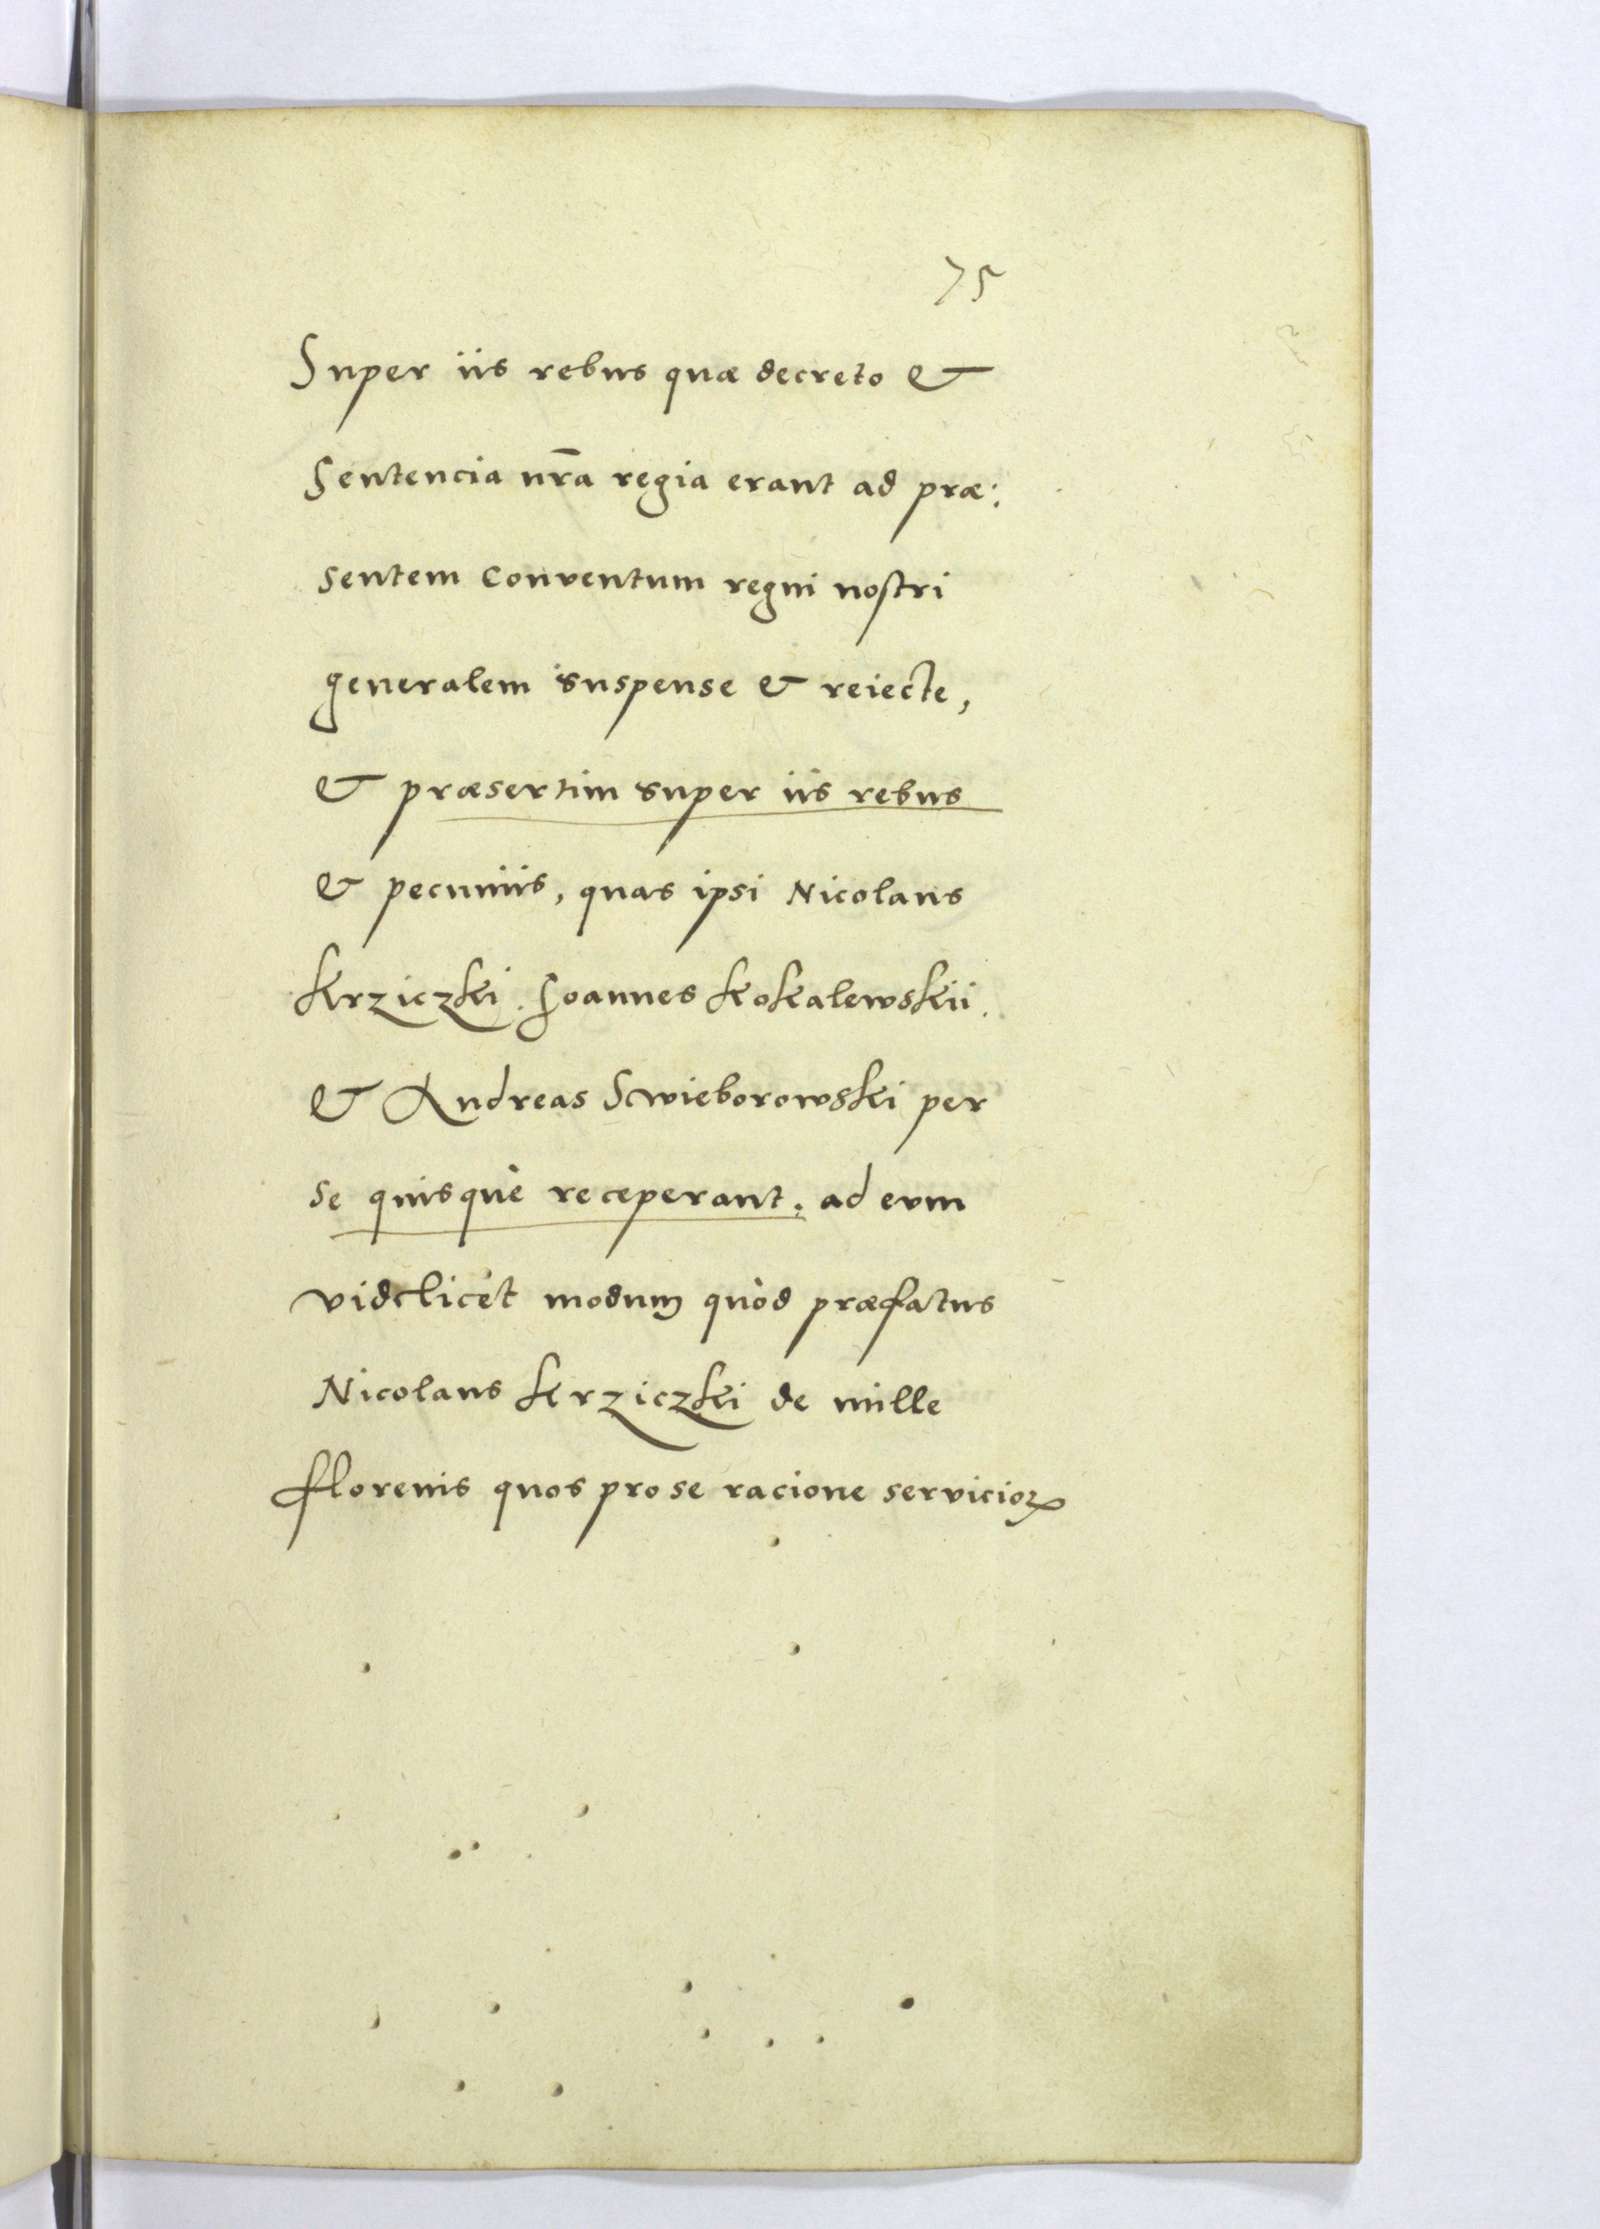 75
Super iis rebus quæ decreto &
Sentencia nr̄a regia erant ad præ:
sentem Conventum regni nostri
generalem suspense & reiecte,
& præsertim super iis rebus
& pecuniis, quas ipsi Nicolaus
Krziczki. Joannes Kokalewskii.
& Andreas Swieborowski per
se quisque receperant. ad eum
videlicet modum quòd præfatus
Nicolaus Krziczki de mille
florenis quos pro se racione servicioꝝ